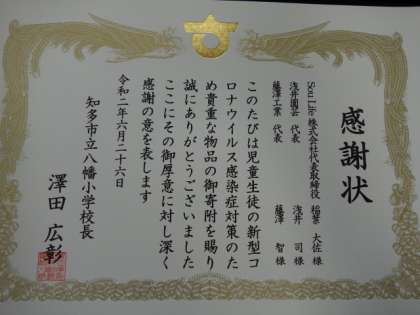 感謝状
Sou Life 株式会社代表取締役 稲葉 大佐 様
浅井園芸 代表 浅井 司 様
藤澤工業 代表 藤澤 智 様
このたびは児童生徒の新型コ
ロナウイルス感染症対策のた
め貴重な物品の御寄附を賜り
誠にありがとうございました
ここにその御厚意に対し深く
感謝の意を表します
令和二年六月二十六日
知多市立八幡小学校長
澤田 広彰